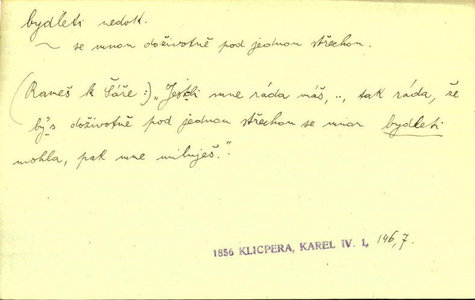 bydleti nedok.
~ se mnou doživotně pod jednou střechou.
(Raneš k Šáře:) „Jestli mne ráda máš, .., tak ráda, že
by's doživotně pod jednou střechou se mnou bydleti
mohla, pak mne miluješ."
1856 KLICPERA, KAREL IV. 1, 146,7.